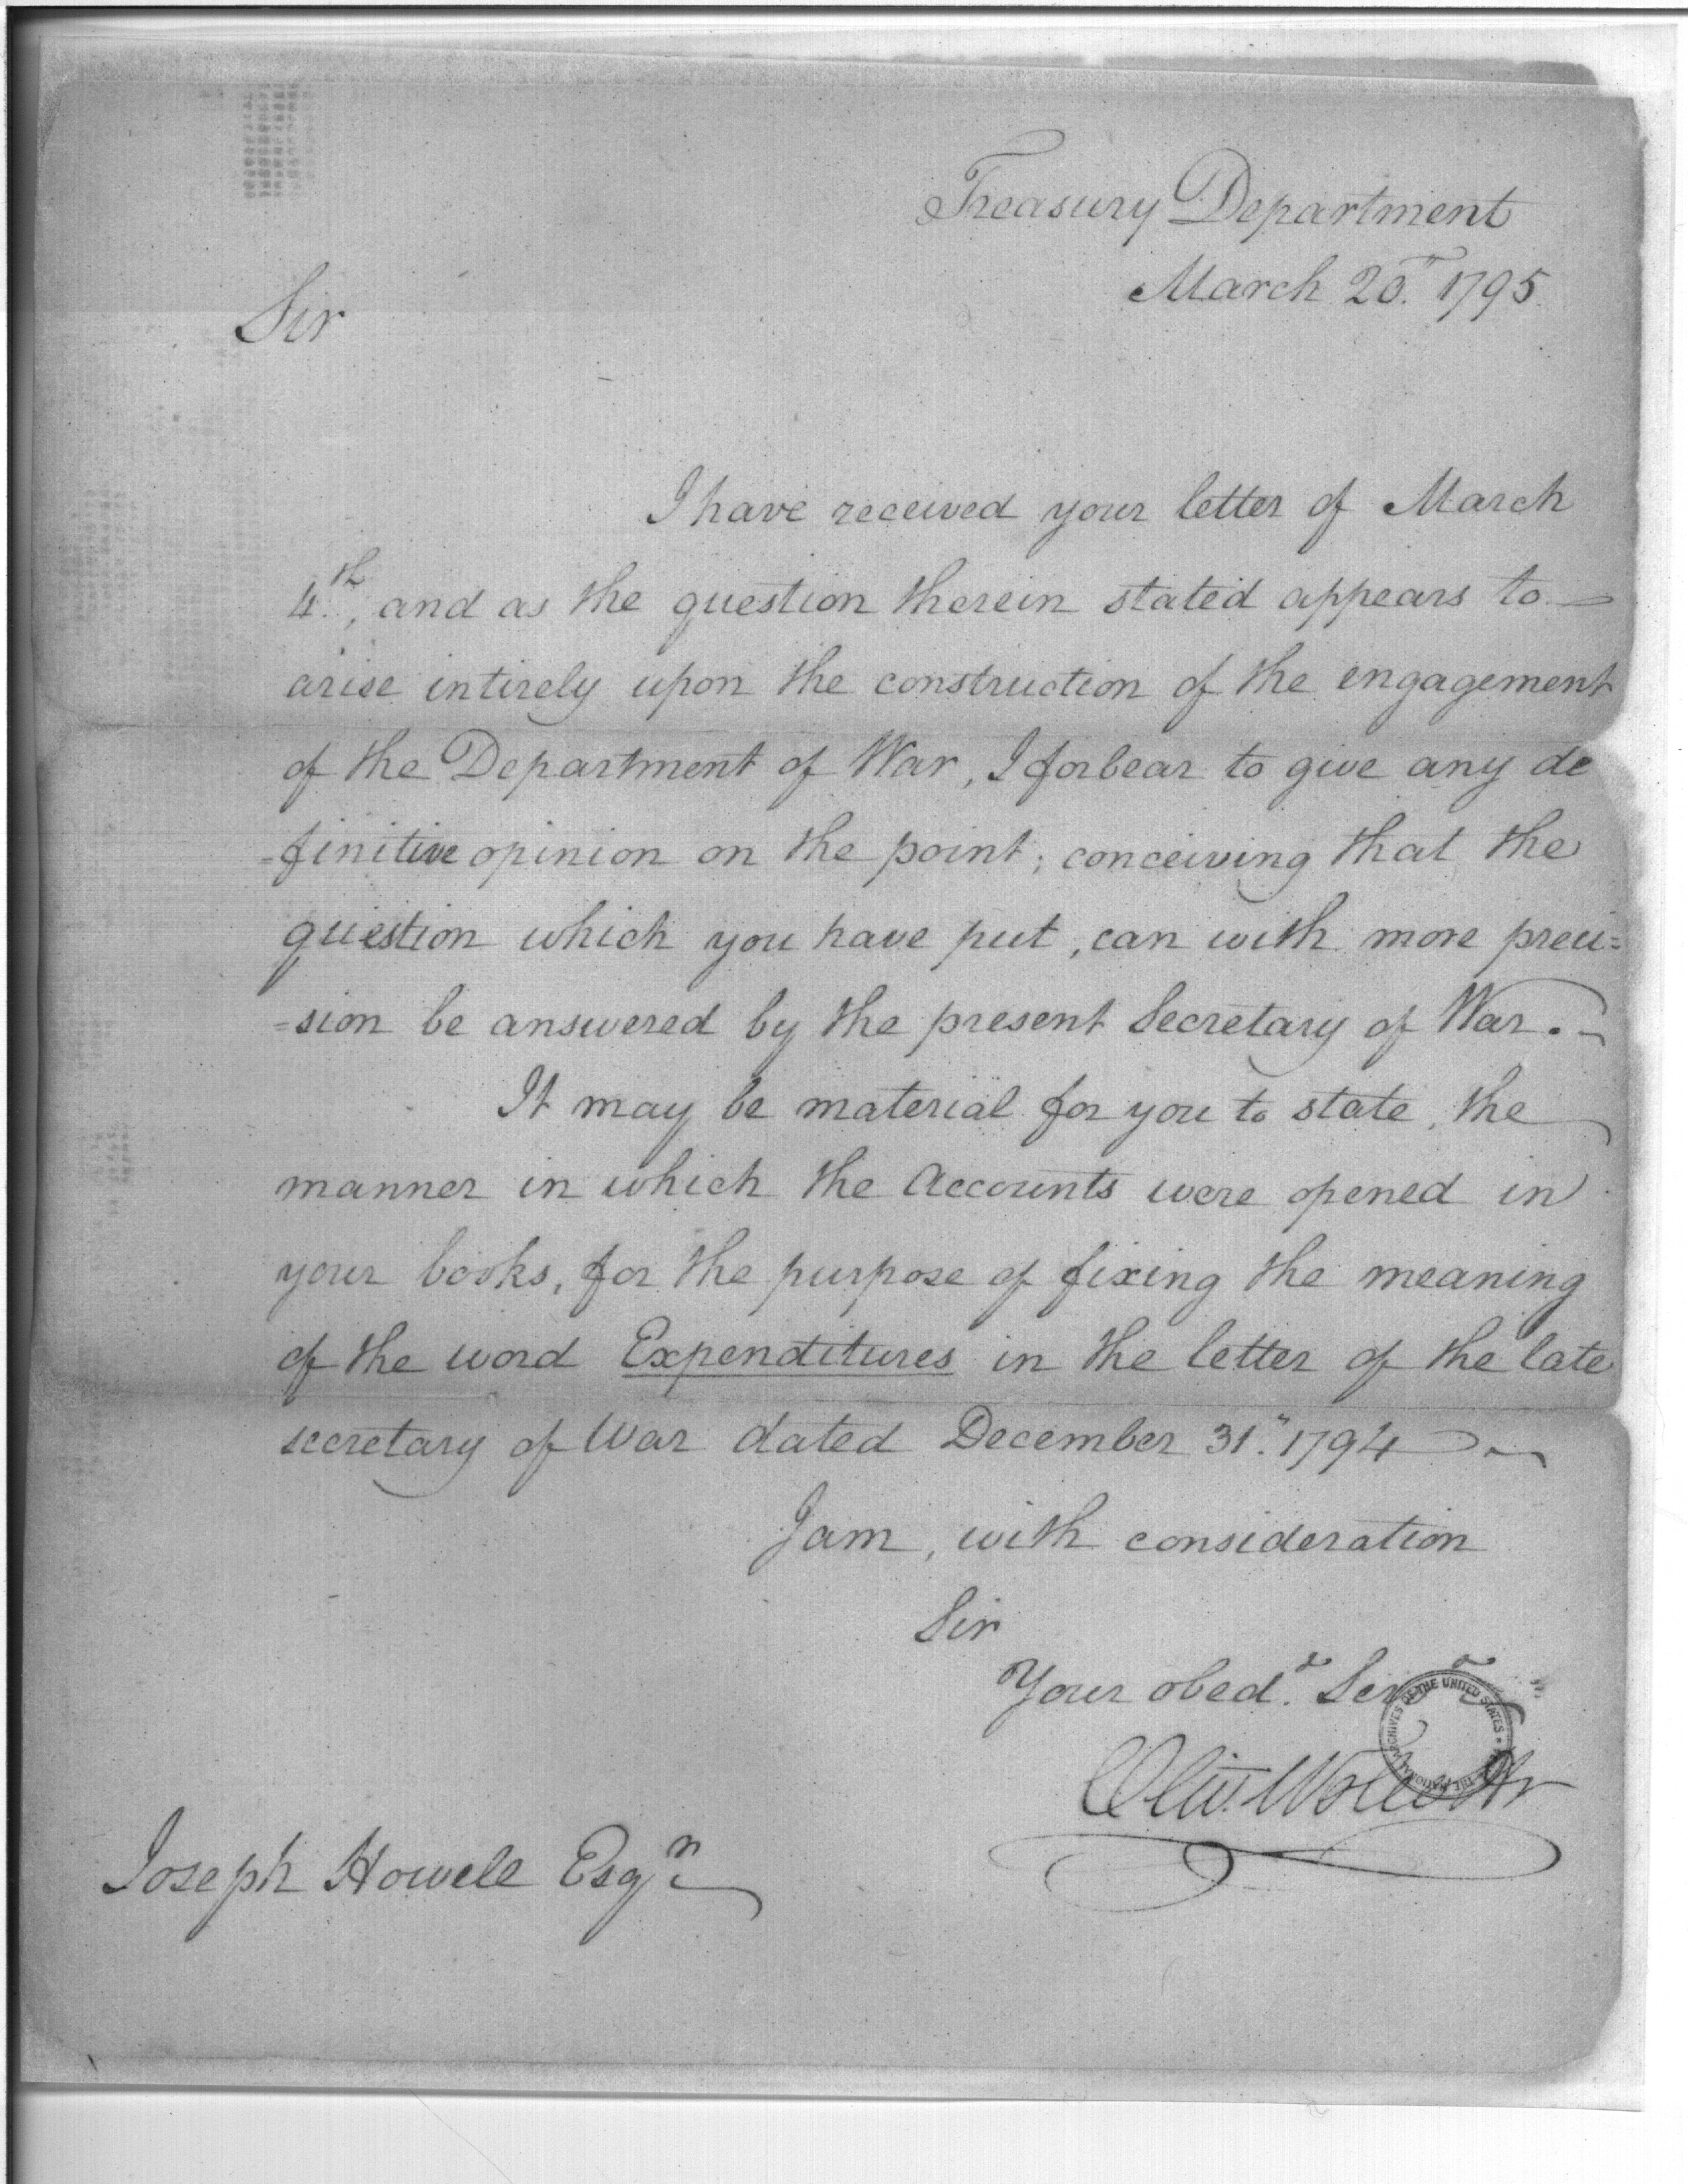 Treasury Department
March 20.th 1795.
Sir
I have received your letter of March
4.th, and as the question therein stated appears to
arise intirely upon the construction of the engagement
of the Department of War, I forbear to give any de
=finitive opinion on the point; conceiving that the
question which you have put, can with more preci=
=sion be answered by the present Secretary of War.
It may be material for you to state, the
manner in which the Accounts were opened in
your books, for the purpose of fixing the meaning
of the word Expenditures in the letter of the late
secretary of War dated December 31." 1794
I am, with consideration
Sir
Your obed.t Serv
Oliv. Wolcott Jr
ARCHIVES OF THE UNITED STATES • THE NATIONAL
Joseph Howell Esqr